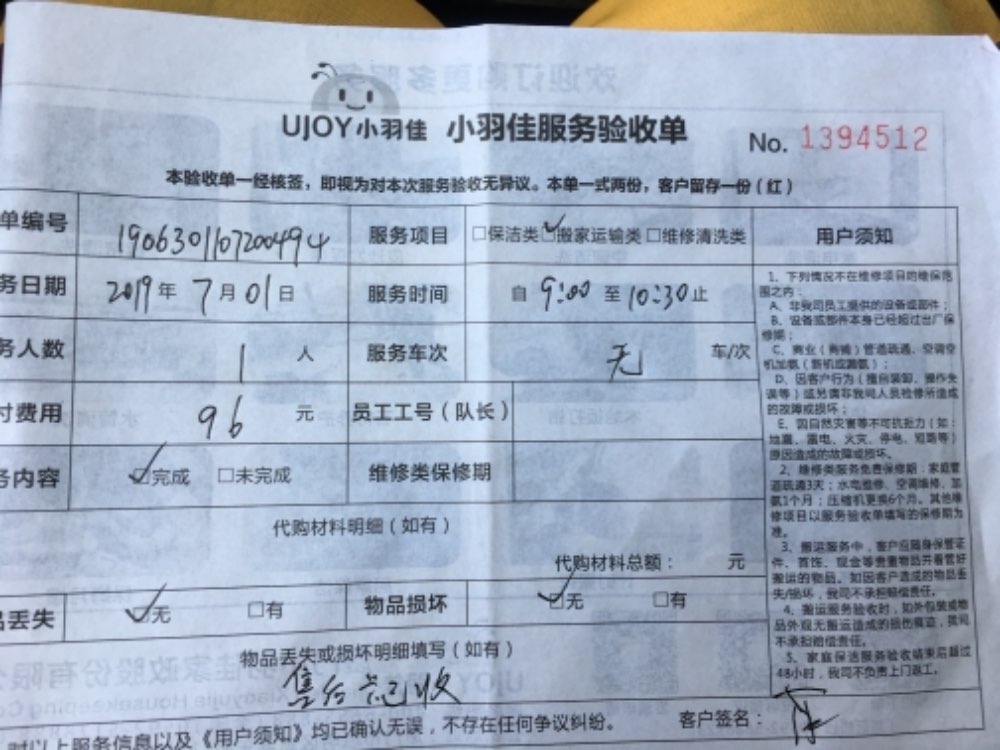 UJOY小羽佳 小羽佳服务验收单 No. 1394512
本验收单一经核签，即视为对本次服务验收无异议。本单一式两份，客户留存一份（红）
单编号 1906301107200494 服务项目 □保洁类 ☑搬家运输类 □维修清洗类
务日期 2019年 7月01日 服务时间 自 9:00 至 10:30 止
务人数 1 人 服务车次 无 车/次
付费用 96 元 员工工号（队长）
务内容 ☑完成 □未完成 维修类保修期
代购材料明细（如有）
代购材料总额： 元
品丢失 ☑无 □有 物品损坏 ☑无 □有
物品丢失或损坏明细填写（如有）
售后 已收
对以上服务信息以及《用户须知》均已确认无误，不存在任何争议纠纷。 客户签名：
用户须知
1、下列情况不在维修项目的维保范
围之内：
A、非我司员工提供的设备或部件；
B、设备或部件本身已经超过出厂保
修期；
C、商业（商铺）管道疏通、空调空
机加氨（新机或漏氨）；
D、因客户行为（擅自装卸、操作失
误等）或另请非我司人员检修所造成
的故障或损坏；
E、因自然灾害等不可抗拒力（如：
地震、雷电、火灾、停电、短路等）
原因造成的故障或损坏。
2、维修类服务免费保修期：家庭管
道疏通3天；水电维修、空调维修、加
氨1个月；压缩机更换6个月。其他维
修项目以服务验收单填写的保修期为
准。
3、搬运服务中，客户应随身保管证
件、首饰、现金等贵重物品并看管好
搬运的物品。如因客户造成的物品丢
失/损坏，我司不承担赔偿责任。
4、搬运服务验收时，如外包装或物
品外观无搬运造成的损伤痕迹，我司
不承担赔偿责任。
5、家庭保洁服务验收结束后超过
48小时，我司不负责上门返工。